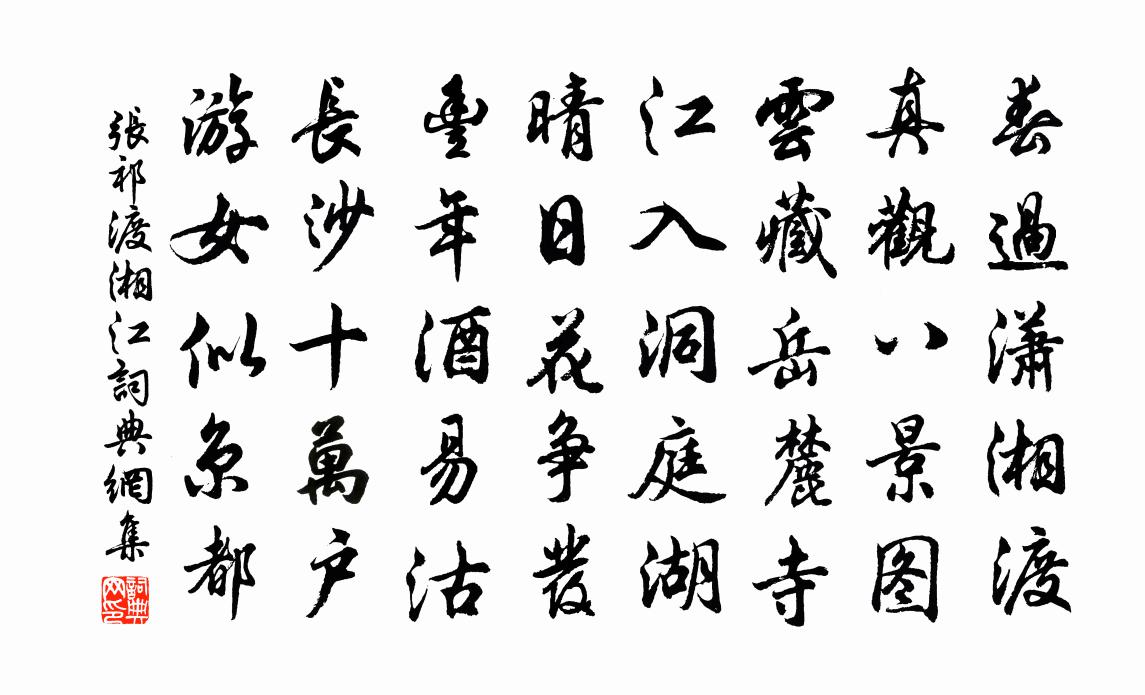 春過瀟湘渡
真觀八景图
雲藏岳麓寺
江入洞庭湖
晴日花争發
豊年酒易沽
長沙十萬戶
游女似京都
張祁渡湘江詞典網集
詞典网印